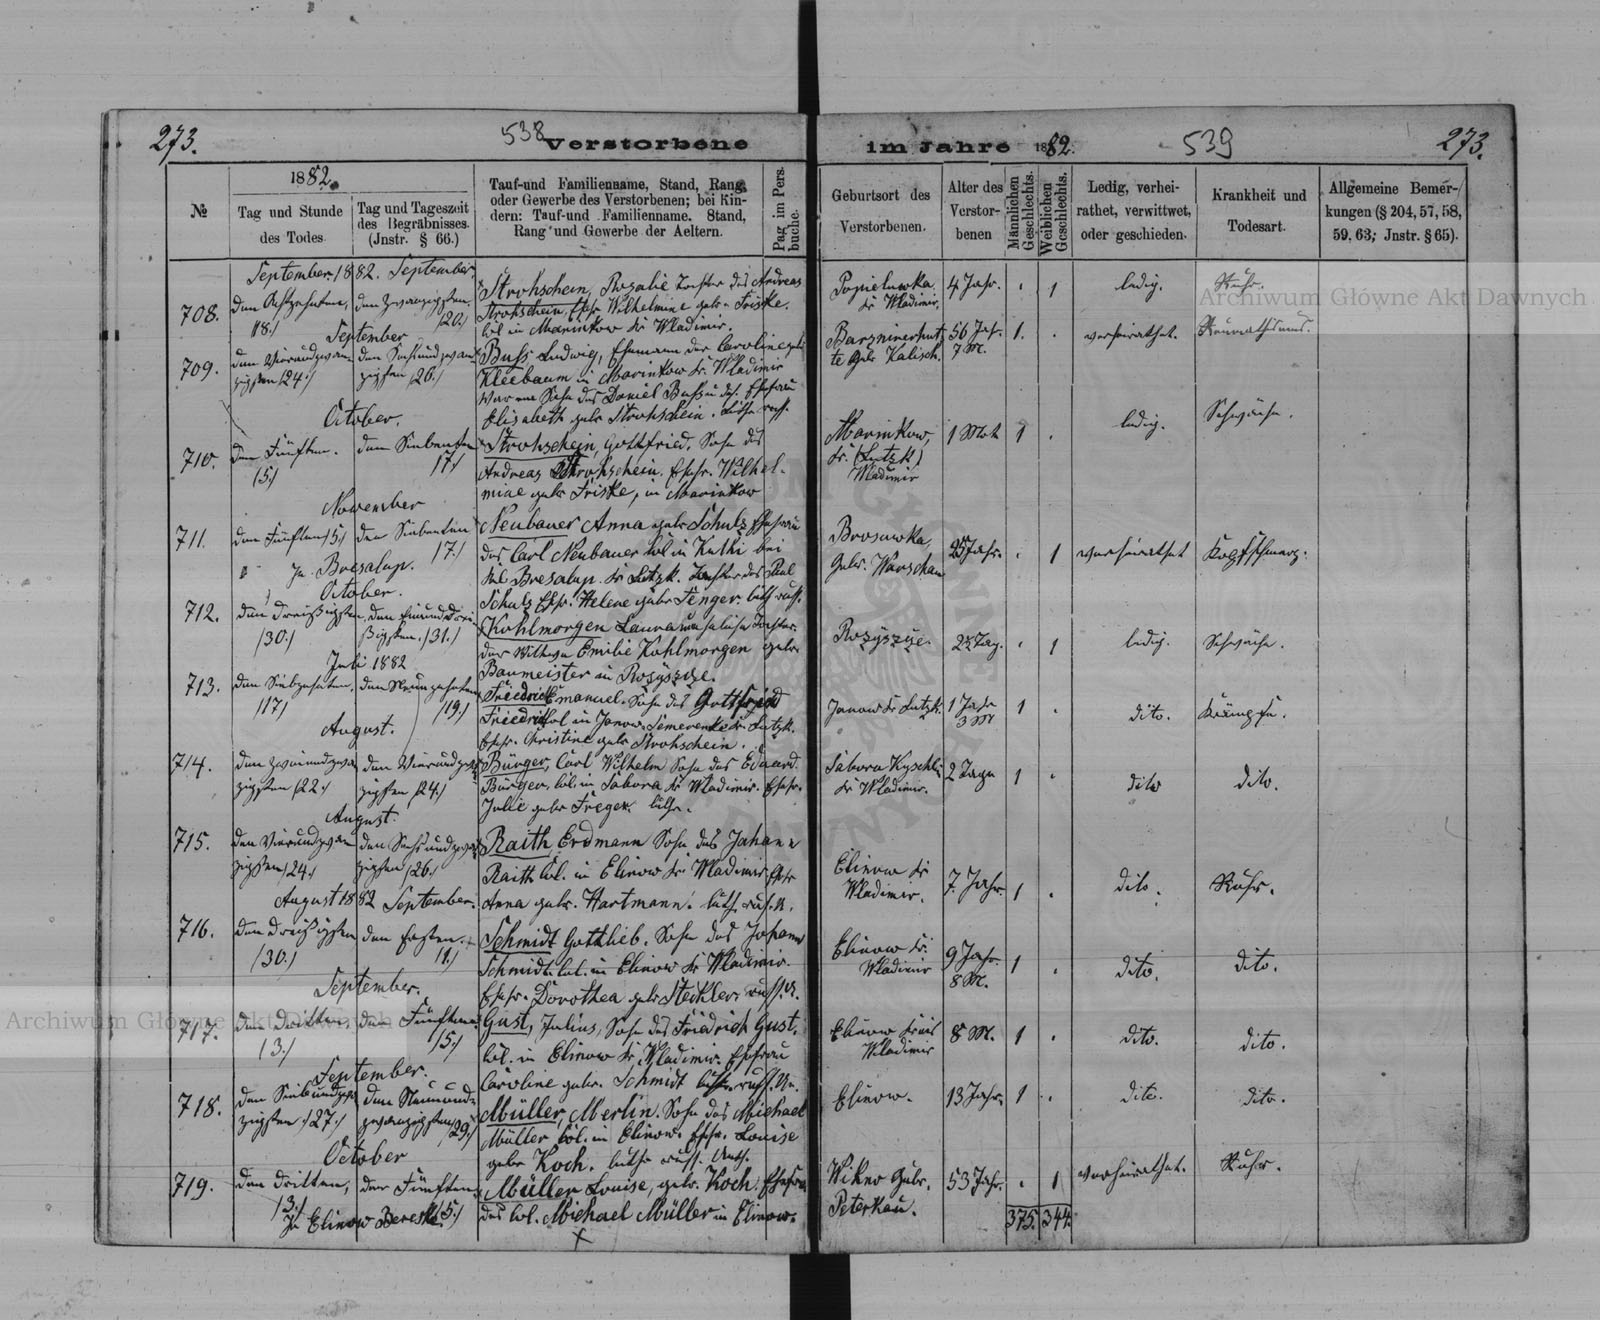 273.
538
Verstorbene
im Jahre 1882.
539
273.
1882.
№
Tag und Stunde
des Todes.
Tag und Tageszeit
des Begräbnisses.
(Jnstr. § 66.)
Tauf-und Familienname, Stand, Rang,
oder Gewerbe des Verstorbenen; bei Kin-
dern: Tauf-und Familienname. Stand,
Rang und Gewerbe der Aeltern.
Pag im Pers.
buche.
Geburtsort des
Verstorbenen.
Alter des
Verstor-
benen
Männlichen
Geschlechts.
Weiblichen
Geschlechts.
Ledig, verhei-
rathet, verwittwet,
oder geschieden.
Krankheit und
Todesart.
Allgemeine Bemer-
kungen (§ 204, 57, 58,
59, 63; Jnstr. § 65).
September 1882. September.
708.
den Achtzehnten,
/18./
den Zwanzigsten.
/20./
Strohschein, Rosalie Tochter des Andreas
Strohschein, Ehefr. Wilhelmine geb. Friske.
kol in Marinkow Kr Wladimir.
4 Jahr.
1
ledig.
Ruhr.
September
709.
den Vierundzwan
zigsten /24./
den Sechsundzwan
zigsten /26./
Buss Ludwig, Ehemann der Caroline geb
Kleebaum in Marinkow Kr. Wladimir
war ein Sohn des Daniel Buss u des. Ehefrau
Elisabeth geb. Strohschein.
te Gub Kalisch.
56 Jah.
7 M.
1.
verheirathet.
October.
710.
den Fünften.
/5/
den Siebenten
/7/
Strohschein, Gottfried, Sohn des
Andreas Strohschein. Ehefr. Wilhel-
mine geb Friske, in Marinkow
Marinkow,
Kr. (Lutzk)
Wladimir
1 Mot
1
ledig.
Schwäche.
November
711.
den Fünften /5/
den Siebenten
/7./
In Bresalup.
Neubauer Anna geb Schulz Ehefrau
des Carl Neubauer kol in Kutki bei
Bresalup. Kr Lutzk. Tochter des Paul
Schulz Ehfr. Helene geb Fenger.
Brosuwka,
Gub. Warschau
25 Jahr.
1
verheirathet
Kopfschmerz.
October.
712.
den Dreißigsten
/30./
den Einunddrei
ßigsten. /31./
Kohlmorgen Laura Tochter
der Wittwe Emilie Kohlmorgen geb
Baumeister in Rozyszcze.
Rozyszcze.
1
ledig.
Schwäche.
Juli 1882
713.
den Siebzehnten
/17/
den Neunzehnten
/19./
Friedrich Emanuel. Sohn des Gottfried
Friedrich kol in Janow. Kr Lutzk.
Ehefr. Christine geb Strohschein.
Janow Kr Lutzk.
1 Jahr
3 M
1
dito.
Krämpfe.
August.
714.
den Zweiundzwan
zigsten /22./
den Vierundzwan
zigsten /24./
Bürger, Carl Wilhelm Sohn des Eduard
Bürger, kol. in Sabora Kr Wladimir. Ehefr.
Julie geb. luthr.
Kr Wladimir.
2 Tage
1
dito
dito.
August.
715.
den Vierundzwan
zigsten /24./
den Sechsundzwan
zigsten /26./
Raith, Erdmann Sohn des Johann
Raith kol. in Elinow Kr Wladimir Ehfr
Anna geb. Hartmann.
Elinow Kr
Wladimir.
7. Jahr.
1
dito.
Ruhr.
August 1882 September.
716.
den Dreißigsten
/30./
den Ersten.
/1./
Schmidt Gottlieb. Sohn des Johann
Schmidt. kol. in Elinow Kr Wladimir.
Ehefr. Dorothea geb Steckler.
Elinow Kr.
Wladimir
9 Jahr.
8 M.
1
dito.
dito.
September.
717.
den Dritten,
/3./
den Fünften
/5./
Gust, Julius, Sohn des Friedrich Gust.
kol. in Elinow Kr Wladimir. Ehefrau
Caroline geb. Schmidt
Elinow Kreis
Wladimir
8 M.
1
dito.
dito.
September.
718.
den Siebundzwan
zigsten /27./
den Neunund-
zwanzigsten /29./
Müller, Merlin. Sohn des Michael
Müller kol. in Elinow. Ehefr. Louise
geb Koch.
Elinow.
13 Jahr.
1
dito.
dito.
October
719.
den Dritten,
/3./
den Fünften
/5./
In Elinow
Müller Louise, geb. Koch, Ehefrau
des kol. Michael Müller in Elinow.
Gub.
Peterkau.
53 Jahr.
1
verheirathet.
Ruhr.
375.
344.
Archiwum Główne Akt Dawnych
Archiwum Główne Akt Dawnych